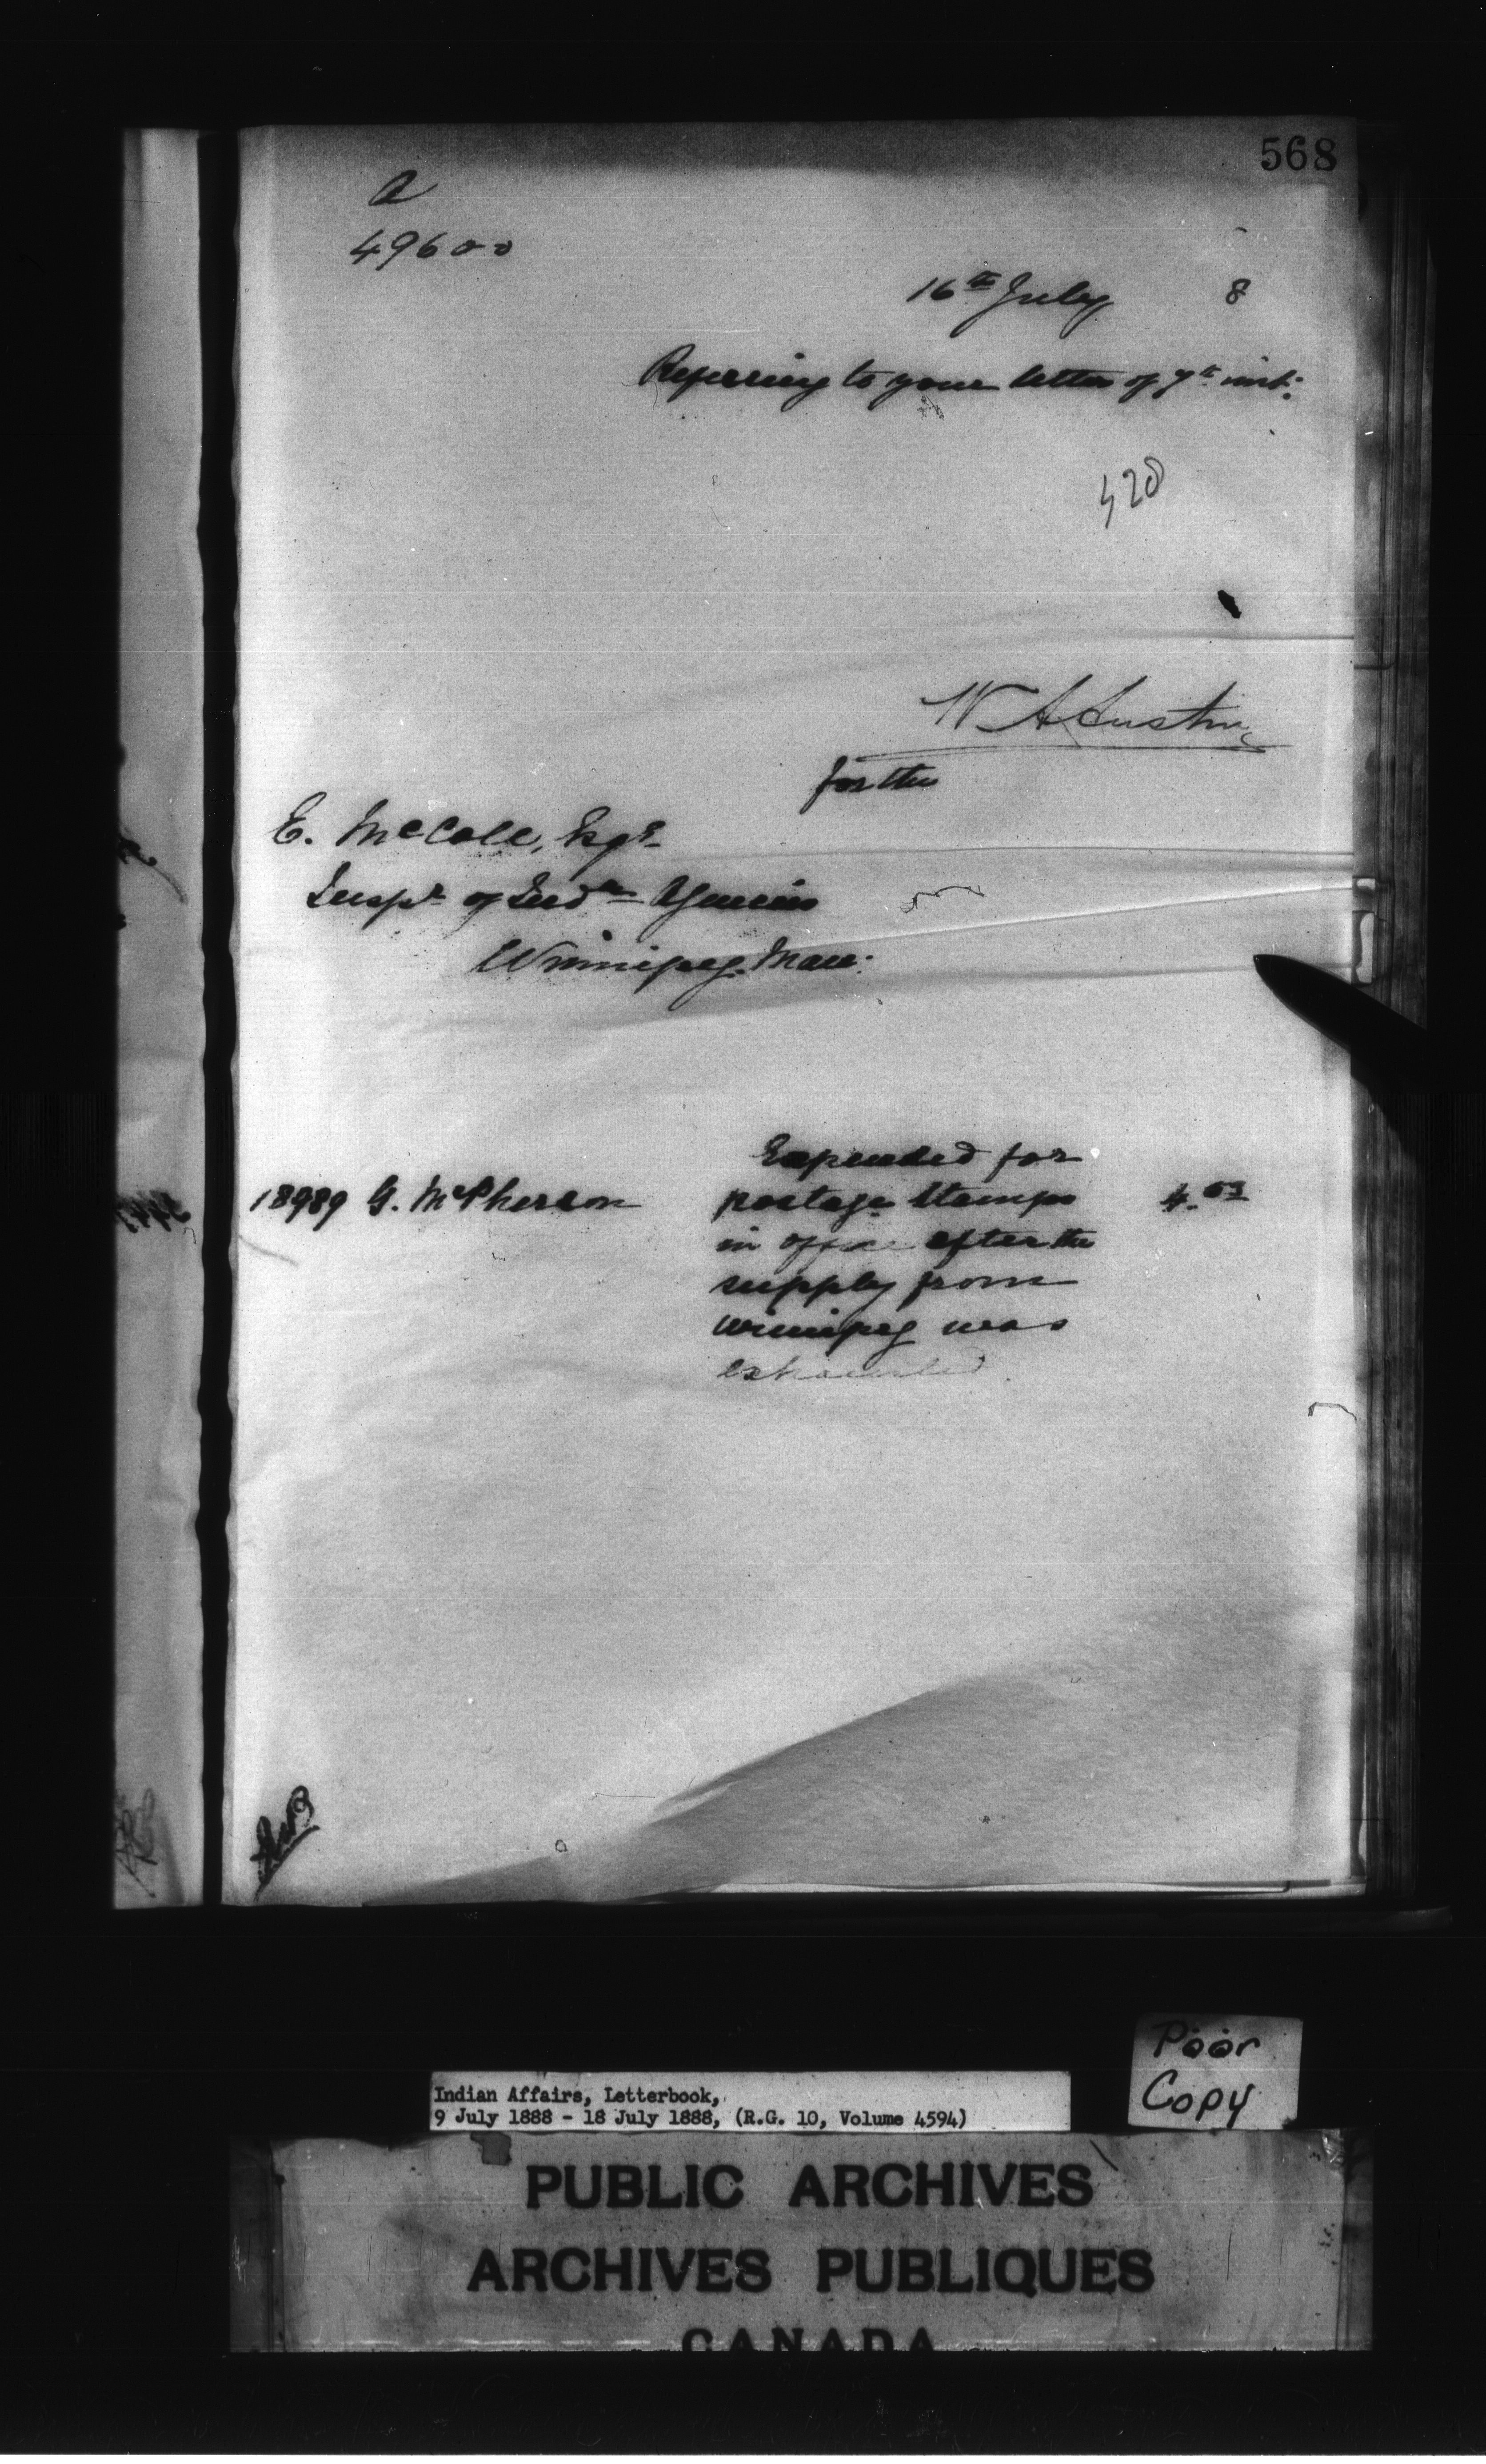 568
A
49600
16th July 8
Referring to your letter of 7th inst:
420
W A Austin
for the
E. McColl, Esqr.
Inspr of Indn Agencies
Winnipeg, Man:
Expended for
18989 G. McPherson postage Stamps 4.03
in office after the
supply from
Winnipeg was
exhausted.
Poor
Copy
Indian Affairs, Letterbook,
9 July 1888 - 18 July 1888, (R.G. 10, Volume 4594)
PUBLIC ARCHIVES
ARCHIVES PUBLIQUES
CANADA